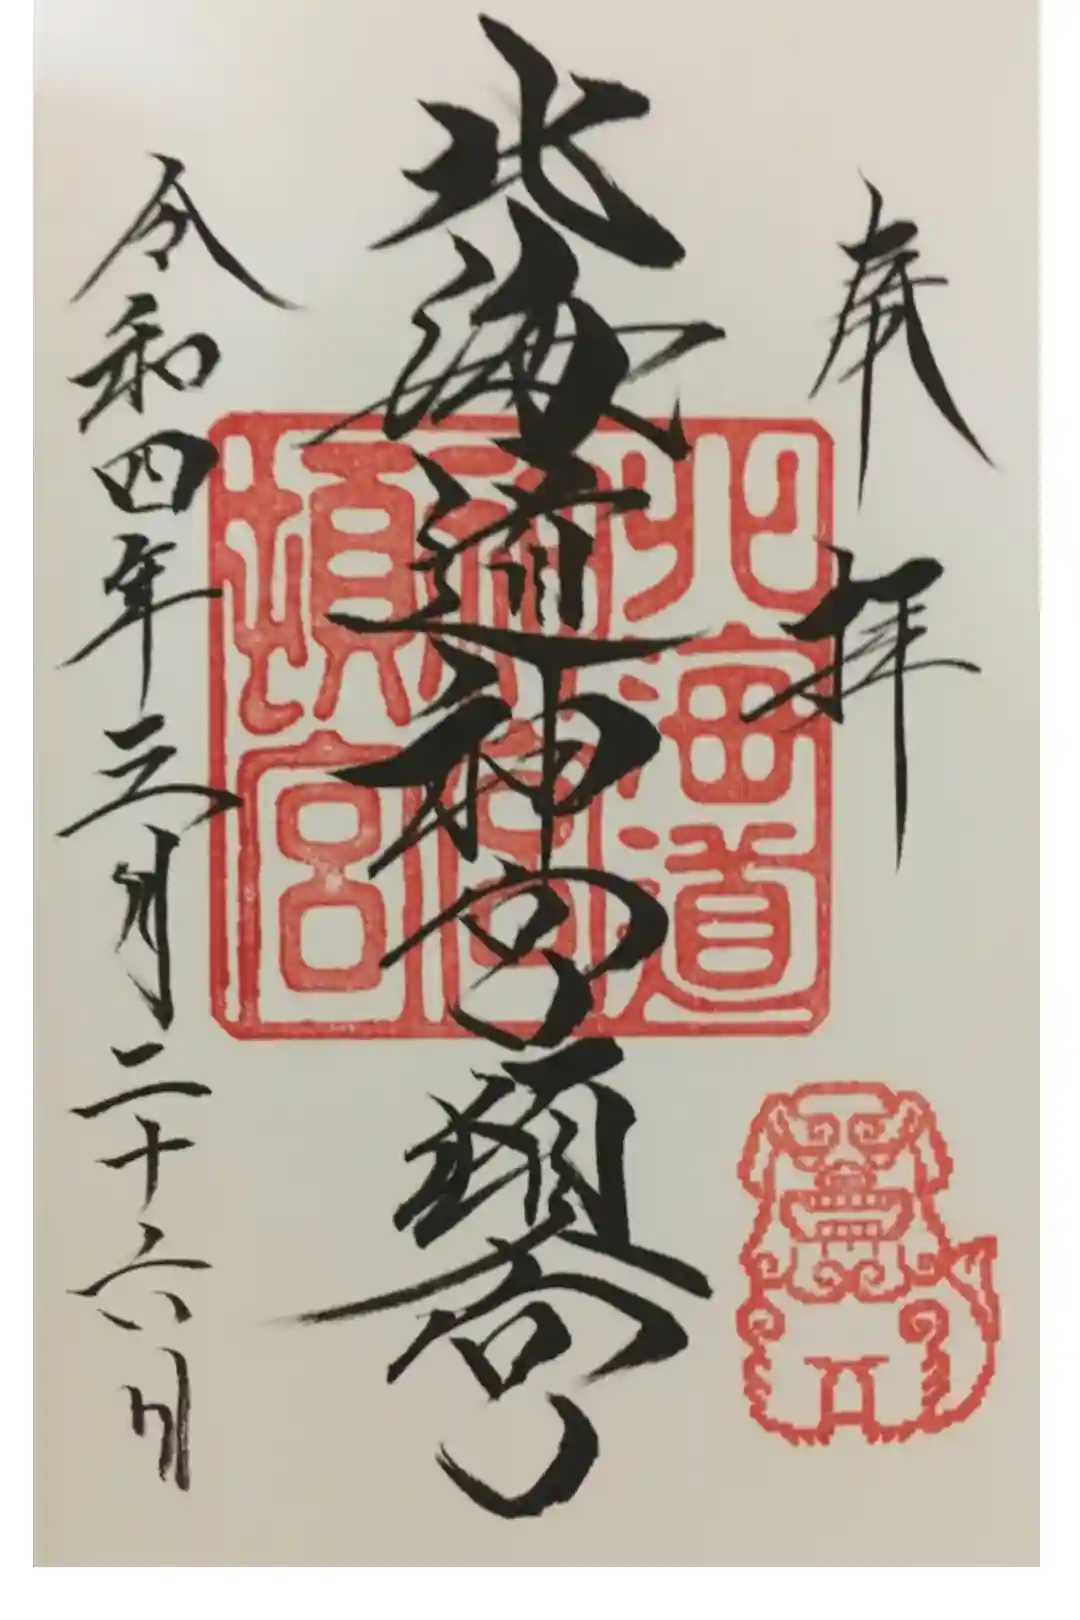 奉拝
北海道神宮頓宮
令和四年三月二十六日
北海道
神宮
頓宮